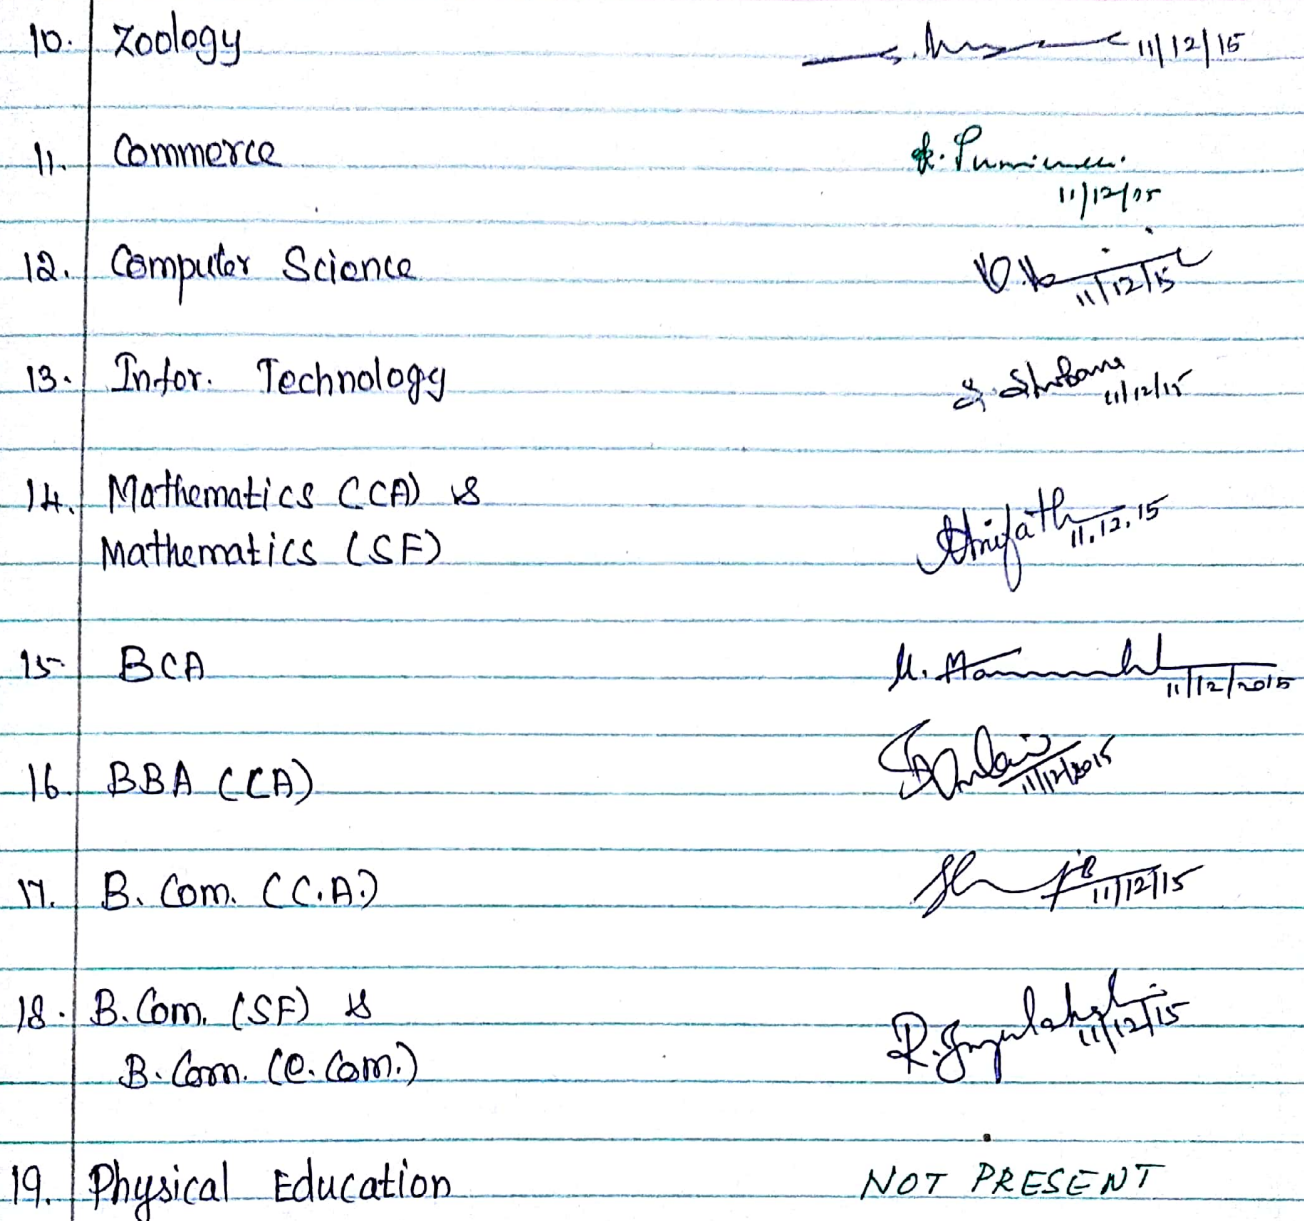 10. Zoology 11/12/15
11. Commerce
11/12/05
12. Computer Science 11/12/15
13. Infor. Technology 11/12/15
14. Mathematics (CA) &
Mathematics (SF) 11.12.15
15. BCA 11/12/2015
16. BBA (CA) 11/12/2015
17. B. Com. (C.A.) 11/12/15
18. B. Com. (SF) & 11/12/15
B. Com. (e. Com.)
19. Physical Education NOT PRESENT